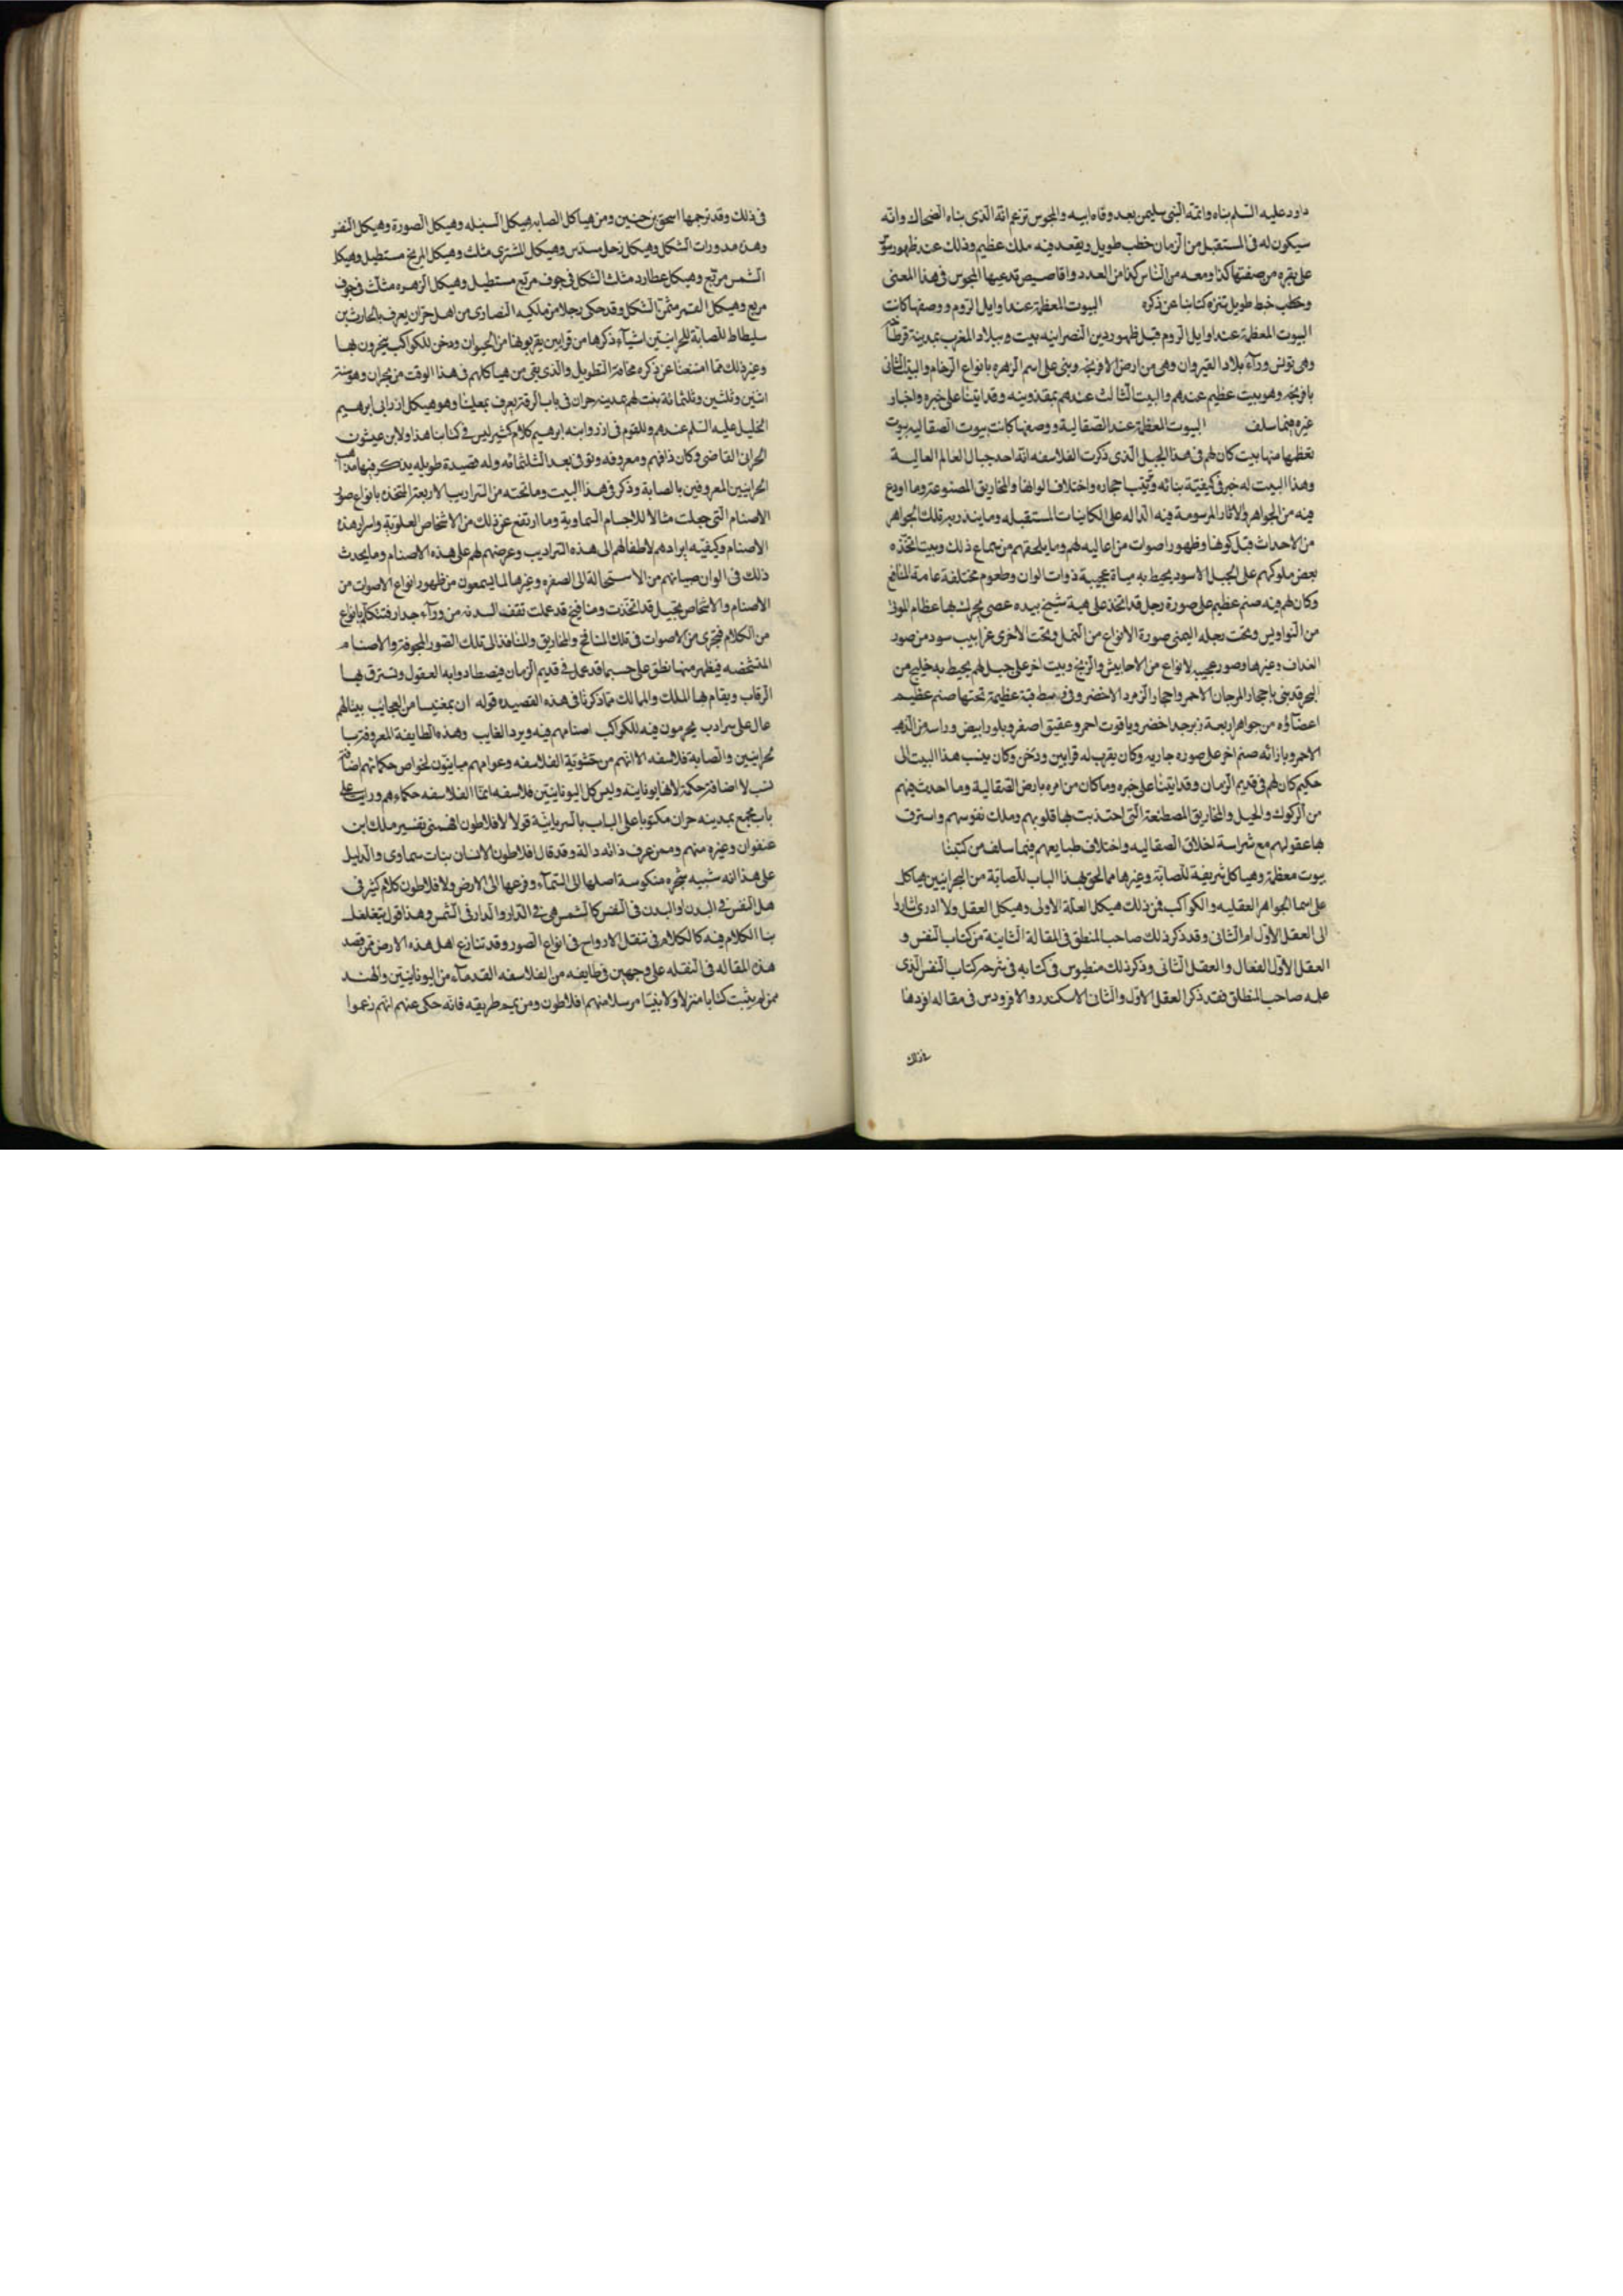 داود عليه السلم بناه وانمه النبى سليمن بعد وفاه ابيه والمجوس تزعم انه الذى بناه الضحاك وانه
سيكون له فى المستقبل من الزمان خطب طويل ويقعد فيه ملك عظيم وذلك عند ظهور
على بقره من صفتها كذا ومعه من الناس كذا من العدد واقاصيص تدعيها المجوس فى هذا المعنى
وخطب خبط طويل تنزه كتابنا عن ذكره البيوت المعظمة عند اوايل الروم ووصفها كانت
البيوت المعظمة عند اوايل الروم قبل ظهور دين النصرانيه بيت ببلاد المغرب بمدينة قرطاجنه
وهى تونس ورآء بلاد القيروان وهى من ارض الافرنجه وبنى على اسم الزهره بانواع الرخام والبيت الثانى
بافرنجه وهو بيت عظيم عندهم والبيت الثالث عندهم بمقدونيه وقد اتينا على خبره واخبار
غيره فيما سلف البيوت المعظمة عند الصقالية ووصفها كانت بيوت الصقاليه بيوت
تعظمها منها بيت كان لهم فى هذا الجبل الذى ذكرت الفلاسفه انه احد جبال العالم العالية
وهذا البيت له خبر فى كيفية بنائه وترتيب احجاره واختلاف الوانها والمخاريق المصنوعة وما اودع
فيه من الجواهر والاثار المرسومة فيه الداله على الكاينات المستقبله وما ينذر به تلك الجواهر
من الاحداث قبل كونها وظهور اصوات من اعاليه لهم وما يلحقهم من سماع ذلك وبيت اتخذه
بعض ملوكهم على الجبل الاسود يحيط به مياة عجيبة ذوات الوان وطعوم مختلفة عامة المنافع
وكان لهم فيه صنم عظيم على صورة رجل قد اتخذ على هيئة شيخ بيده عصى يحرك بها عظام الموتى
من النواويس وتحت رجله اليمنى صورة الانواع من النمل وتحت الاخرى غرابيب سود من صور
الغداف وغيرها وصور عجيبة لانواع من الاحابيش والزنج وبيت اخر على جبل لهم يحيط به خليج من
البحر قد بنى باحجار المرجان الاحمر واحجار الزمرد الاخضر وفى وسطه قبة عظيمة تحتها صنم عظيم
اعضآؤه من جواهر اربعة زبرجد اخضر وياقوت احمر وعقيق اصفر وبلور ابيض وراسه من الذهب
الاحمر وبازائه صنم اخر على صوره جاريه وكان يقرب له قرابين ودخن وكان ينسب هذا البيت الى
حكيم كان لهم فى قديم الزمان وقد اتينا على خبره وما كان من امره بارض الصقالية وما احدث فيهم
من الركوك والحيل والمخاريق المصطنعة التى اجتذبت بها قلوبهم وملك نفوسهم واسترق
بها عقولهم مع شراسة اخلاق الصقاليه واختلاف طبايعهم فيما سلف من كتبنا
بيوت معظمة وهياكل شريفة للصابة وغيرها مما لحق بهذا الباب للصابة من الحرانيين هياكل
على اسما الجواهر العقليه والكواكب فمن ذلك هيكل العلة الاولى وهيكل العقل ولا ادرى اشاروا
الى العقل الاول ام الثانى وقد ذكر ذلك صاحب المنطق فى المقالة الثانية من كتاب النفس و
العقل الاول الفعال والعقل الثانى وذكر ذلك منطيوس فى كتابه فى شرحه كتاب النفس الذى
عمله صاحب المنطق فقد ذكر العقل الاول والثانى الاسكندر والافروديسى فى مقاله افردها
فى ذلك
فى ذلك وقد ترجمها اسحق بن حنين ومن هياكل الصابه هيكل السنبله وهيكل الصورة وهيكل النفس
وهذه مدورات الشكل وهيكل زحل مسدس وهيكل المشترى مثلث وهيكل المريخ مستطيل وهيكل
الشمس مربع وهيكل عطارد مثلث الشكل فى جوف مربع مستطيل وهيكل الزهره مثلث فى جوف
مربع وهيكل القمر مثمن الشكل وقد حكى رجلا من ملكيه النصارى من اهل حران يعرف بالحارث بن
سنباط للصابة للحرانيين اشيآء ذكرها من قرابين يقربونها من الحيوان ودخن للكواكب يبخرون بها
وغير ذلك مما امتنعنا عن ذكره مخافة التطويل والذى بقى من هياكلهم فى هذا الوقت من بحران وهو سنة
اثنين وثلثين وثلثمائة بنت لهم بمدينه حران فى باب الرقة يعرف بمعلينا وهو هيكل ازر ابى ابرهيم
الخليل عليه السلم عندهم وللقوم فى ازر وابنه ابرهيم كلام كثير ليس فى كتابنا هذا ولابن عيشون
الحرانى القاضى وكان ذا فهم ومعروفه وتوفى بعد الثلثمائه وله قصيدة طويله يذكر فيها مذاهب
الحرانيين المعروفين بالصابة وذكر فى هذا البيت وما تحته من السراديب الاربعة المتخذه بانواع صور
الاصنام التى جعلت مثالا للاجسام السماوية وما ارتفع عن ذلك من الاشخاص العلوية واسرار هذه
الاصنام وكيفيه ايرادهم لاطفالهم الى هذه السراديب وعرضهم لهم على هذه الاصنام وما يحدث
ذلك فى الوان صبيانهم من الاستحالة الى الصفره وغيرها لما يسمعون من ظهور انواع الاصوات من
الاصنام والاشخاص بحيل قد اتخذت ومنافيخ قد عملت تقف السدنه من ورآء جدار فتتكلم بانواع
من الكلام فتجرى من الاصوات فى تلك المنافخ والمخاريق والمنافذ الى تلك الصور المجوفة والاصنام
المشخصه فيظهر منها نطق على حسبما قد عمل فى قديم الزمان فيصطادوا به العقول وتسترق بها
الرقاب ويقام بها الملك والممالك مما ذكرنا فى هذه القصيده قوله ان بمغنيسا من العجايب بيتا لهم
عال على سرادب يحرمون فيه للكواكب اصنامهم فيه ويرد الغايب وهذه الطايفة المعروفة بـ
الحرانيين والصابة فلاسفه الا انهم من حشوية الفلاسفه وعوامهم مباينون لخواص حكمائهم اضافة
نسب لا اضافة حكمة لانها يونانيه وليس كل اليونانيين فلاسفه انما الفلاسفه حكماءهم ورايت على
باب مجمع بمدينه حران مكتوبا على الباب بالسريانية قولا لافلاطون افهمنى تفسيره ملك ابن
عنفوان وغيره منهم ومن عرف ذاته داله وقد قال افلاطون الانسان بنات سماوى والدليل
على هذا انه شبيه شجره منكوسة اصلها الى السمآء وفرعها الى الارض ولافلاطون كلام كثير فى
هل النفس فى البدن او البدن فى النفس كالشمس هى فى الدار والدار فى الشمس وهذا قول يتغلغل
بنا الكلام فيه كالكلام فى تنقل الارواح فى انواع الصور وقد تنازع اهل هذه الارض ممن قصد
هذه المقاله فى النقله على وجهين فطايفه من الفلاسفه القدمآء من اليونانيين والهند
ممن لم يثبت كتابا منزلا ولا نبيا مرسلا منهم افلاطون ومن يمم طريقه فانه حكى عنهم انهم زعموا